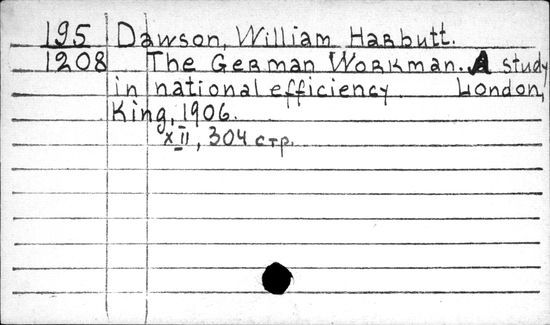 195 Dawson, William Harbutt.
1208 The German Workman. A study
in national efficiency London,
King, 1906.
XII, 304 стр.